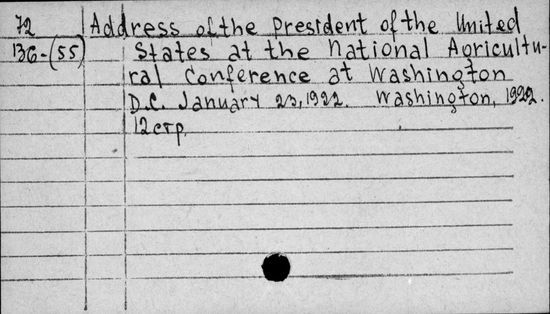 72 Address of the President of the United
136-(55) States at the National Agricultu-
ral Conference at Washington
D.C. January 23, 1922. Washington, 1922.
12 стр.